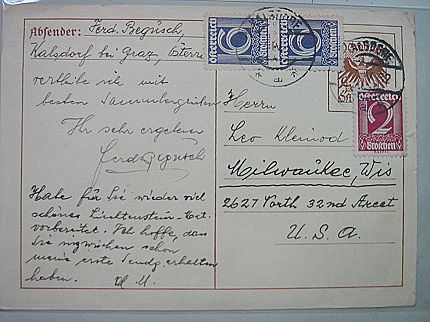 Absender: Ferd. Begusch,
Kalsdorf bei Graz, Österr.
verbleibe ich mit
besten Sammlergrüßen
Ihr sehr ergebener
Ferd Begusch
Habe für Sie wieder viel
schönes Liechtenstein-Mat.
vorbereitet. Ich hoffe, das
Sie inzwischen schon
meine erste Sendg. erhalten
haben.
Herrn
Leo Kleinod
Milwaukee, Wis
2627 North 32nd Street
U.S.A.
österreich
6
Groschen
österreich
6
Groschen
KALSDORF
österreich
2
Groschen